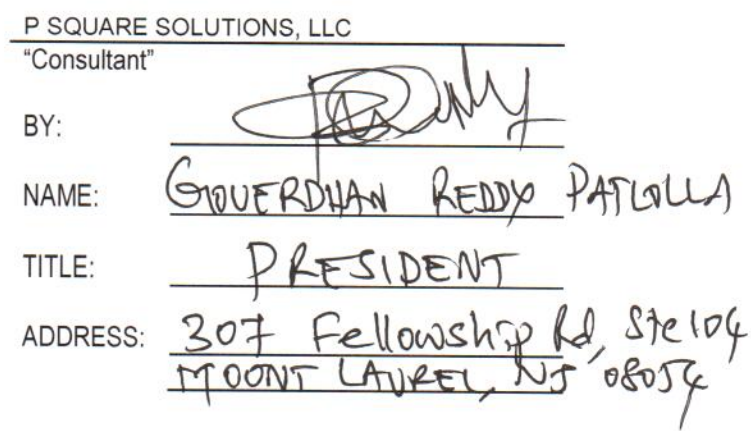 P SQUARE SOLUTIONS, LLC
"Consultant"
BY:
NAME: GOVERDHAN REDDY PATLOLLA
TITLE: PRESIDENT
ADDRESS: 307 Fellowship Rd, Ste 104
MOONT LAUREL, NJ 08054